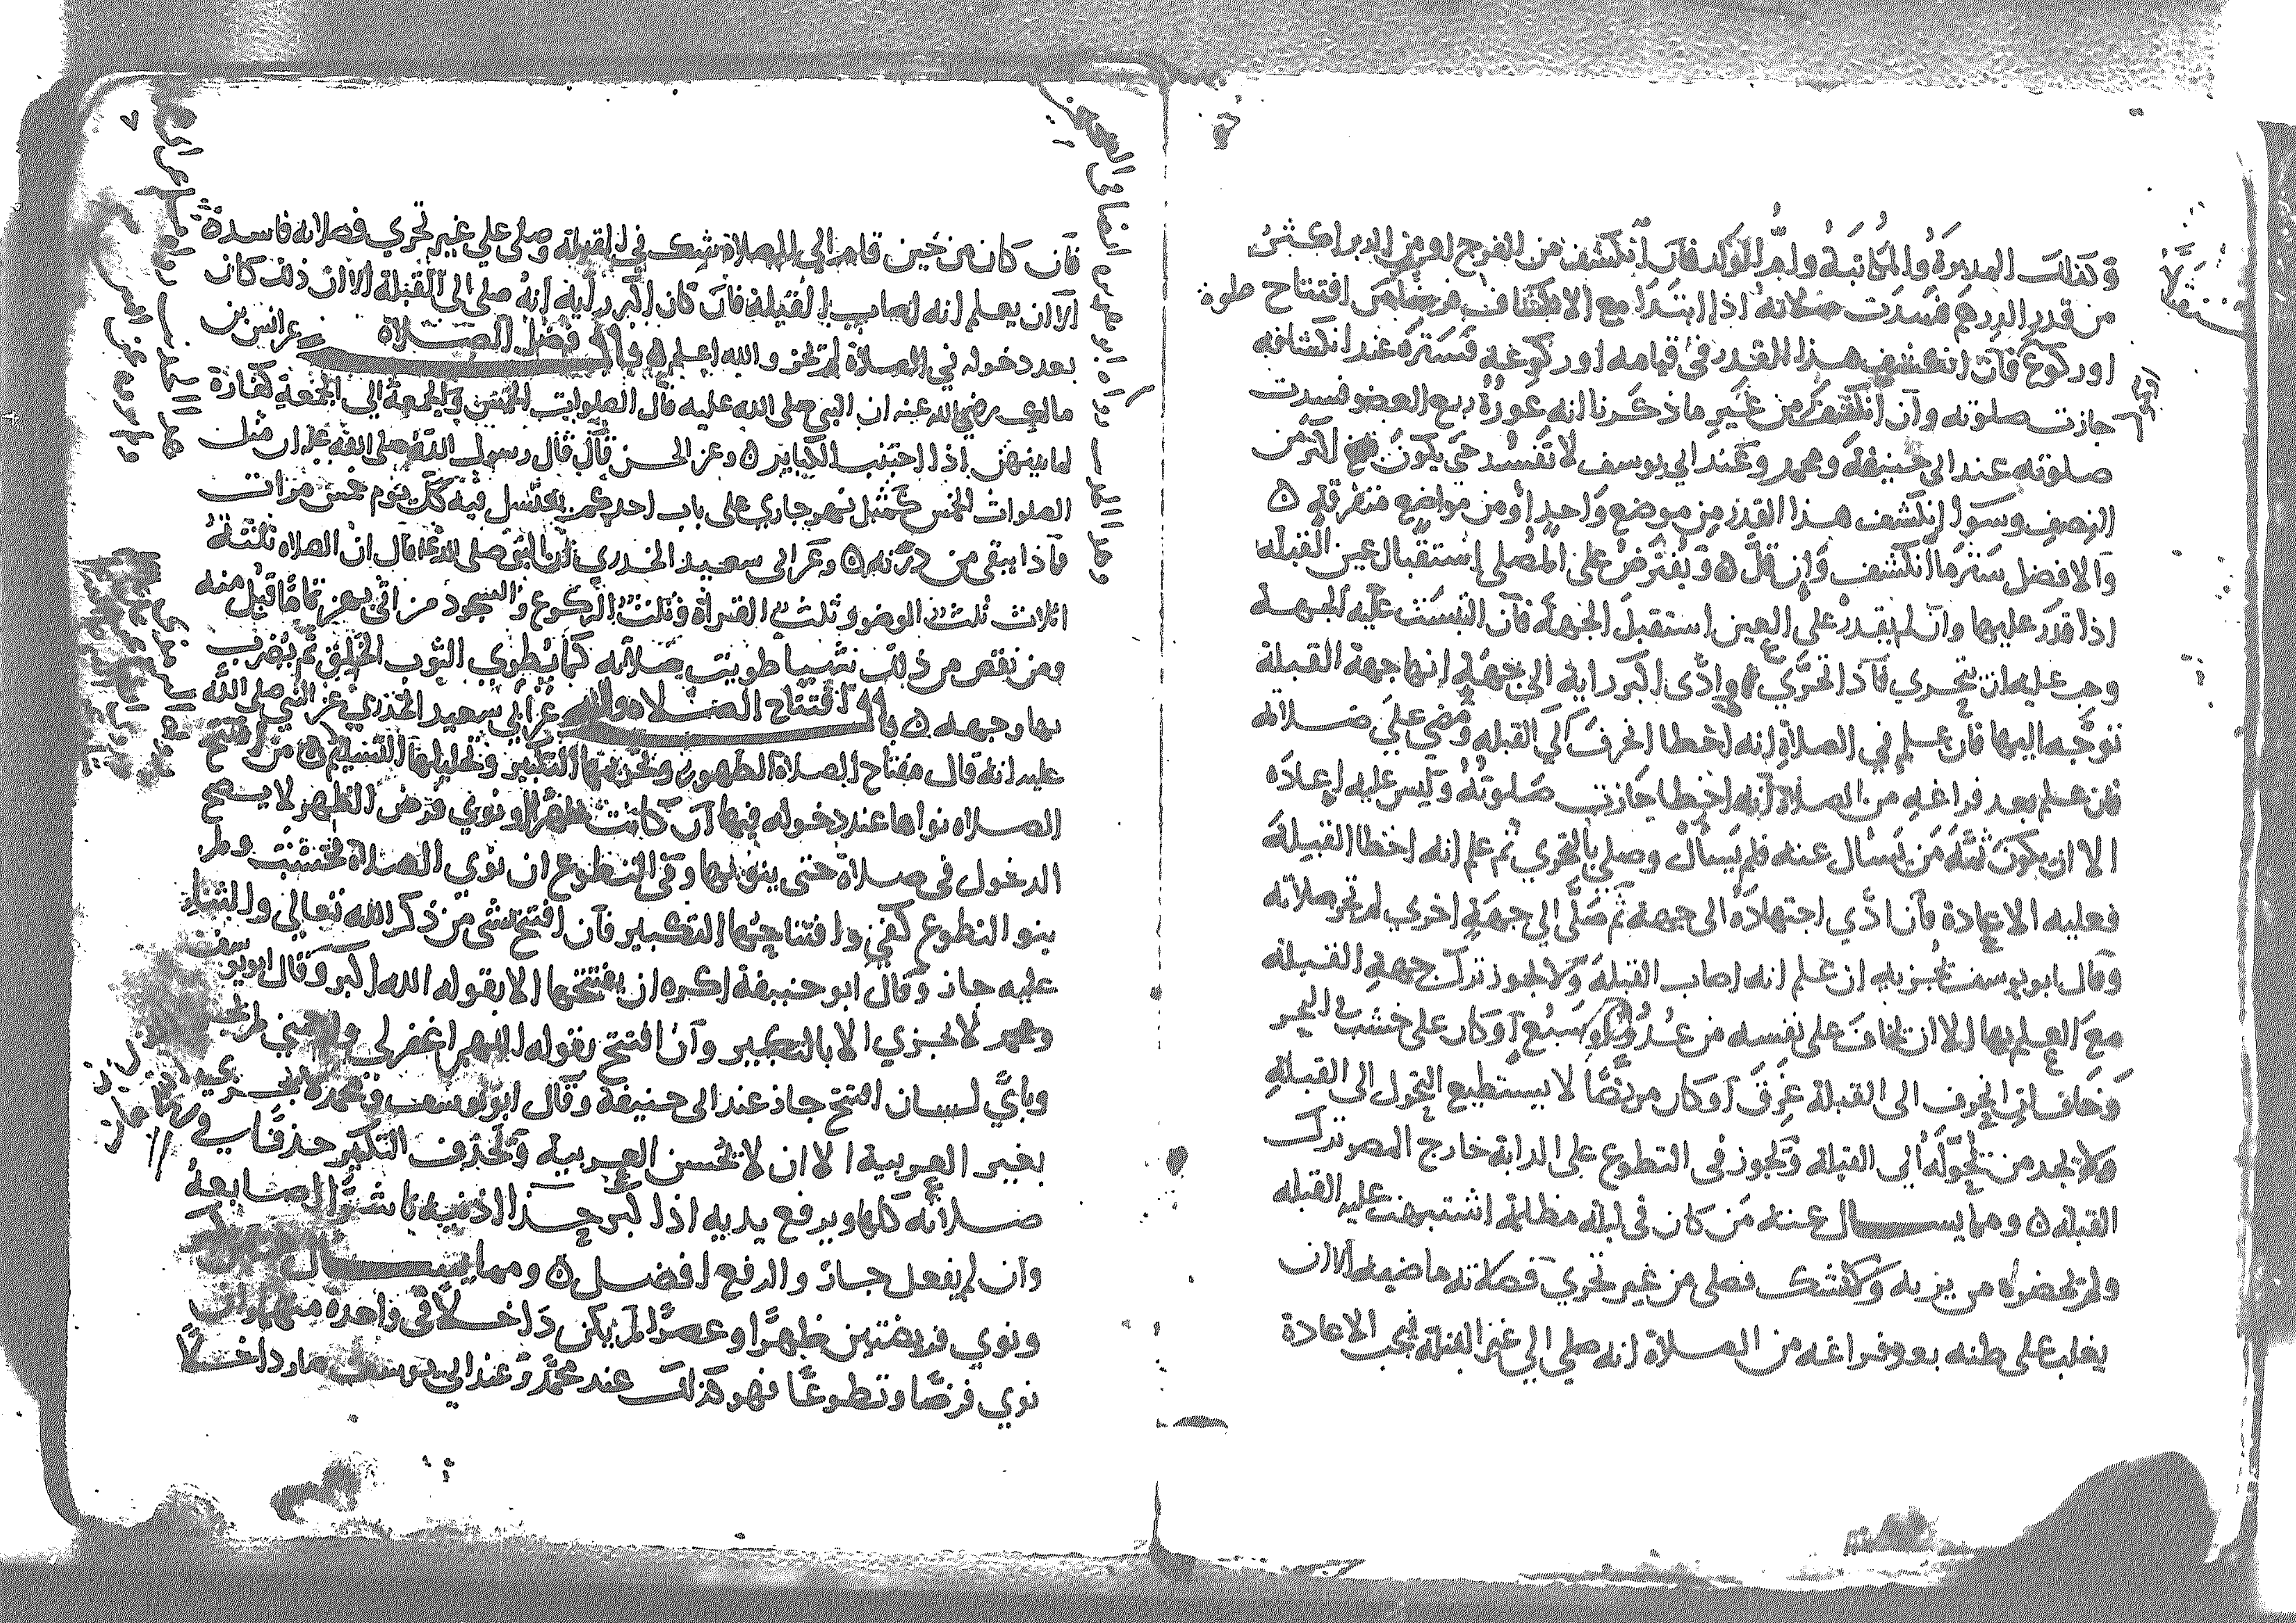 وكذلك المدبرة والمكاتبة وام الولد فان انكشف من الفرج او من الدبر اكثر
من قدر الدرهم فسدت صلاته اذا ابتدا مع الانكشاف افتتاح صلوة
او ركوع فان انكشف هذا القدر في قيامه او ركوعه فستره عند انكشافه
جازت صلوته وان انكشف من غير ما ذكرنا انه عورة ربع العضو فسدت
صلوته عند ابي حنيفة ومحمد وعند ابي يوسف لا تفسد حتى يكون اكثر من
النصف وسوا انكشف هذا القدر من موضع واحد او من مواضع متفرقة ٥
والافضل ستر ما انكشف وان قل ٥ ويفترض على المصلي استقبال عين القبله
اذا قدر عليها وان لم يقدر على العين استقبل الجهة فان التبست عليه الجهة
وجب عليه ان يتحرى فاذا تحرى وادى اكبر رايه الى جهة انها جهة القبلة
توجه اليها فان علم في الصلاة انه اخطا انحرف الى القبله ومضى على صلاته
فان علم بعد فراغه من الصلاة انه اخطا جازت صلوته وليس عليه اعاده
الا ان يكون ثمه من يسال عنه فلم يسال وصلى بالتحري ثم علم انه اخطا القبلة
فعليه الاعادة فان ادى اجتهاده الى جهة ثم صلى الى جهة اخرى لم تجز صلاته
وقال ابو يوسف تجزيه ان علم انه اصاب القبلة ولا يجوز ترك جهة القبلة
مع العلم بها الا ان يخاف على نفسه من عدو او سبع او كان على خشب في البحر
وخاف ان انحرف الى القبلة غرق او كان مريضا لا يستطيع التحول الى القبلة
ولا يجد من يحوله الى القبلة ويجوز في التطوع على الدابة خارج المصر ترك
القبلة ٥ ومما يسال عنه من كان في ليلة مظلمة اشتبهت عليه القبله
ولم تحضره من يريه ولم يشك فصلى من غير تحري فصلاته ماضيه الا ان
يغلب على ظنه بعد فراغه من الصلاة انه صلى الى غير القبلة فيجب الاعادة
فان كان من حين قام الى الصلاة شك في القبلة وصلى على غير تحري فصلاته فاسدة
الا ان يعلم انه اصاب القبلة فان كان اكبر رايه انه صلى الى القبلة الا ان ذلك كان
بعد دخوله في الصلاة لم تجز والله اعلم ٥ باب فضل الصلاة عن انس بن
مالك رضي الله عنه ان النبي صلى الله عليه قال الصلوات الخمس والجمعة الى الجمعة كفارة
لما بينهن اذا اجتنب الكباير ٥ وعن الحسن قال قال رسول الله صلى الله عليه ان مثل
الصلوات الخمس كمثل نهر جاري على باب احدكم يغتسل فيه كل يوم خمس مرات
فماذا يبقى من درنه ٥ وعن ابي سعيد الخدري ان النبي صلى الله عليه قال ان الصلاه ثلثة
اثلاث ثلث الوضو وثلث القراة وثلث الركوع والسجود من اتى بهن تماما قبل منه
ومن نقص من ذلك شييا طويت صلاته كما يطوى الثوب الخلق ثم يضرب
بها وجهه ٥ باب افتتاح الصلاه عن ابي سعيد الخدري عن النبي صلى الله
عليه انه قال مفتاح الصلاة الطهور وتحريمها التكبير وتحليلها التسليم ٥ من افتتح
الصلاه نواها عند دخوله فيها ان كانت ظهرا نوى فرض الظهر لا يصح
الدخول في صلاة حتى ينويها وفي التطوع ان نوى الصلاة ولم
ينو التطوع كفى وافتتاحها التكبير فان افتتح بشي من ذكر الله تعالى والثناء
عليه جاز وقال ابو حنيفة اكره ان يفتتحها الا بقوله الله اكبر وقال ابو يوسف
ومحمد لا يجزي الا بالتكبير وان افتتح بقوله اللهم اغفر لي وارحمني لم يجز
وباي لسان افتتح جاز عند ابي حنيفة وقال ابو يوسف ومحمد لا يجزي
بغير العربية الا ان لا يحسن العربية ويحذف التكبير حذفا في
صلاته كلها ويرفع يديه اذا كبر حذا اذنيه ناشرا اصابعه
وان لم يفعل جاز والرفع افضل ٥ ومما يسال
ونوى فريضتين ظهرا وعصرا لم يكن داخلا في واحدة منهما وان
نوى فرضا وتطوعا فهو كذلك عند محمد وعند ابي يوسف صار داخلا